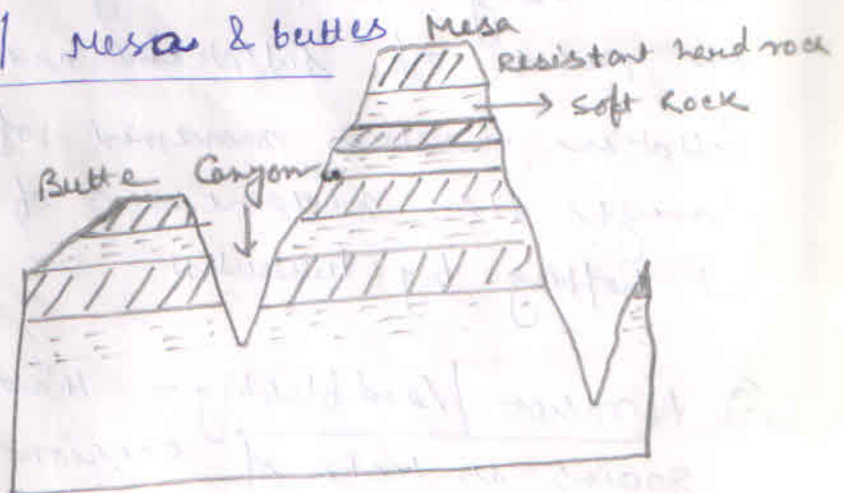 Mesa & buttes
Mesa
Resistant hard rock
Soft Rock
Butte Canyon